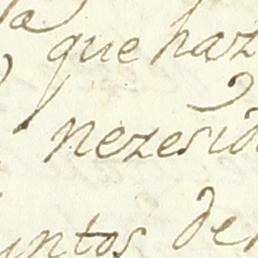 que haz
nezesid
untos de